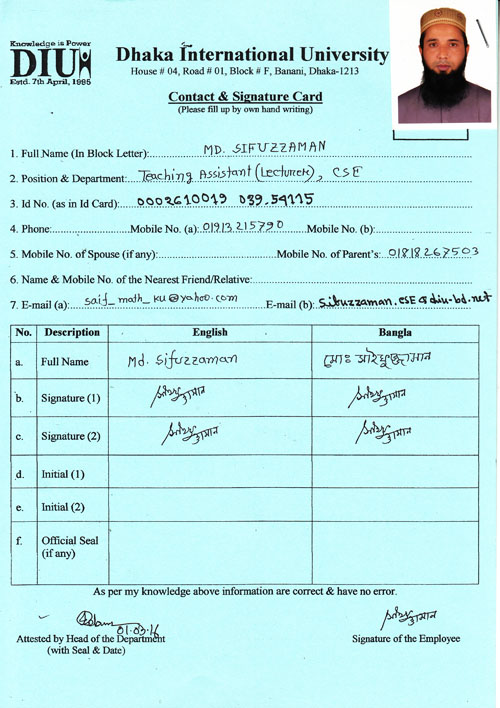 Knowledge is Power
DIU
Estd. 7th April, 1995
Dhaka International University
House # 04, Road # 01, Block # F, Banani, Dhaka-1213
Contact & Signature Card
(Please fill up by own hand writing)
1. Full Name (In Block Letter): MD. SIFUZZAMAN
2. Position & Department: Teaching Assistant (Lecturer), CSE
3. Id No. (as in Id Card): 0002610019 039.54115
4. Phone: Mobile No. (a): 01913215790 Mobile No. (b):
5. Mobile No. of Spouse (if any): Mobile No. of Parent's: 01818267503
6. Name & Mobile No. of the Nearest Friend/Relative:
7. E-mail (a): saif_math_ku@yahoo.com E-mail (b): sifuzzaman.cse@diu-bd.net
No. Description English Bangla
a. Full Name Md. Sifuzzaman মোঃ সাইফুজ্জামান
b. Signature (1)
c. Signature (2)
d. Initial (1)
e. Initial (2)
f. Official Seal
(if any)
As per my knowledge above information are correct & have no error.
Attested by Head of the Department Signature of the Employee
(with Seal & Date)